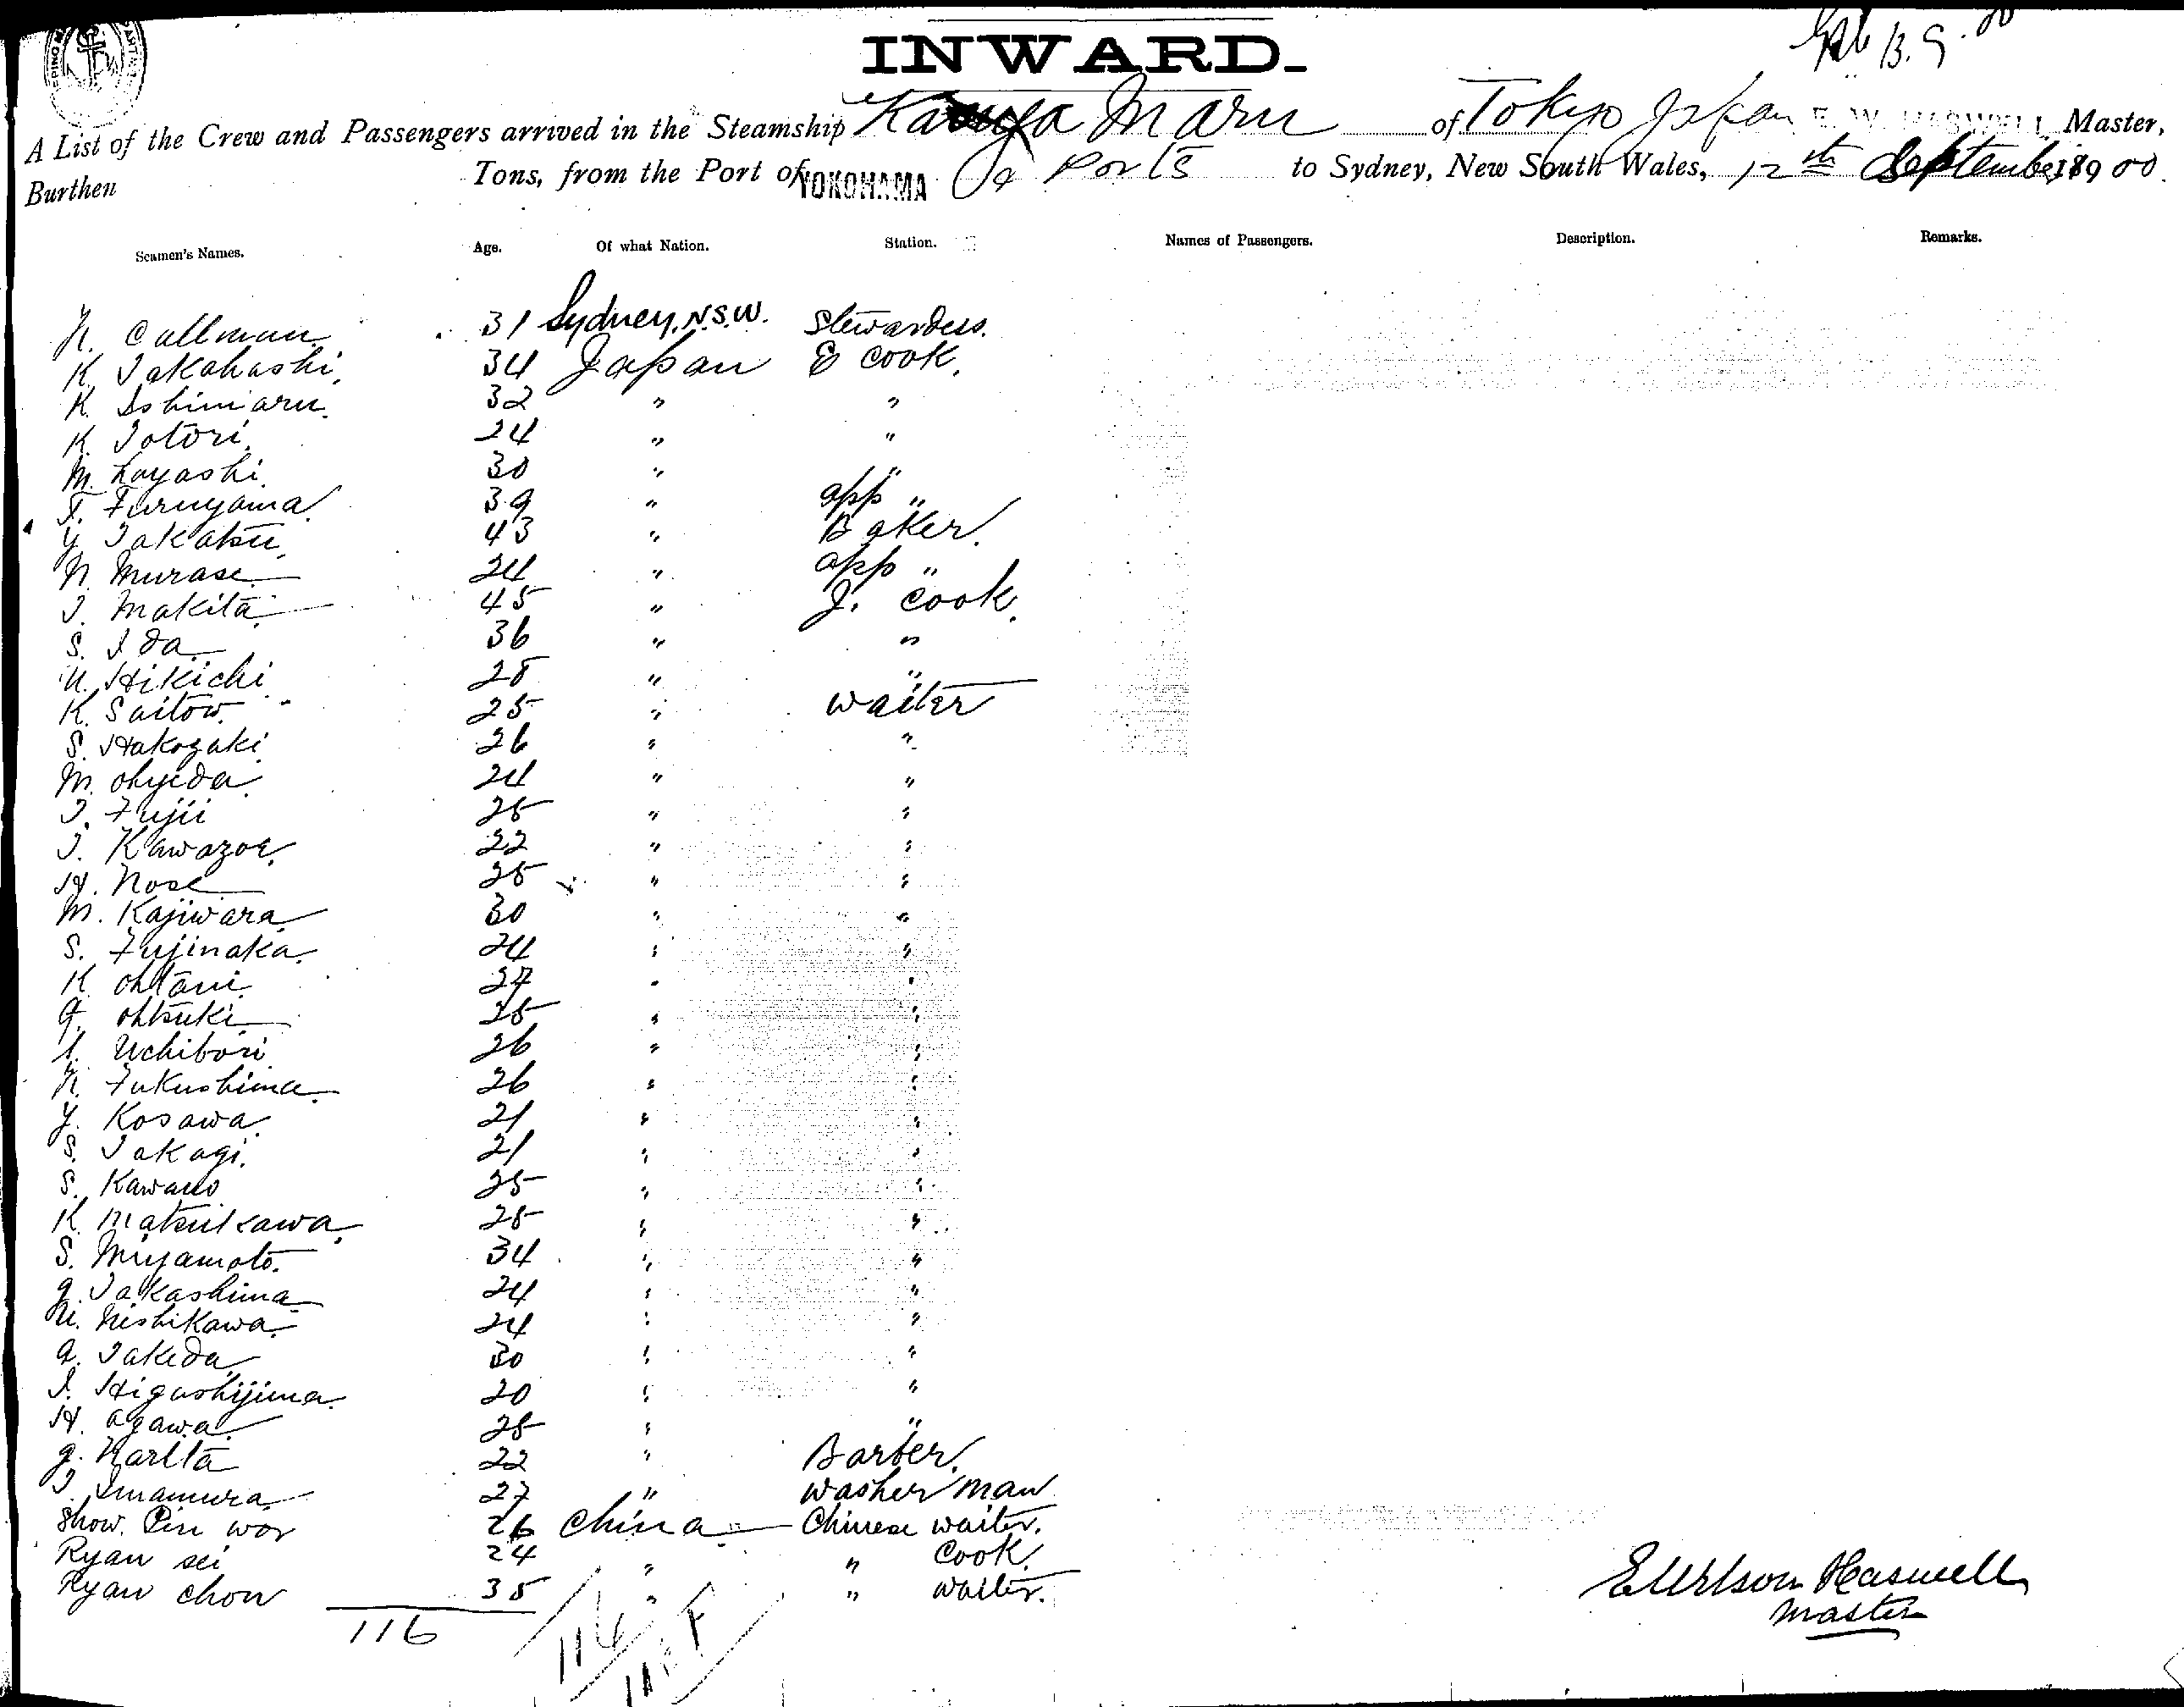 INWARD.
13.9.00
A List of the Crew and Passengers arrived in the Steamship Kasuga Maru of Tokyo Japan E. W. HASWELL, Master,
Burthen Tons, from the Port of YOKOHAMA & Ports to Sydney, New South Wales, 12th September 1900.
Seamen's Names. Age. Of what Nation. Station. Names of Passengers. Description. Remarks.
N. Callman. 31 Sydney, N.S.W. Stewardess.
K. Takahashi, 34 Japan E cook.
K. Ishimaru. 32 " "
K. Totori. 24 " "
M. hayashi. 30 " "
T. Furuyama. 39 " app "
Y. Takatsu, 43 " Baker.
N. Murase. 24 " app "
T. Makita. 45 " J. cook.
S. Ida. 36 " "
U. Hikichi 28 " "
K. Saitow. 25 " waiter
S. Hakozaki. 26 " "
M. ohyeda. 24 " "
T. Fujii 25 " "
T. Kawazoe. 22 " "
H. Nose 25 " "
M. Kajiwara. 30 " "
S. Fujinaka. 24 " "
K. ohtani. 27 " "
G. ohtsuki. 25 " "
I. Uchibori. 26 " "
K. Fukushima. 26 " "
Y. Kosawa. 21 " "
S. Takagi. 21 " "
S. Kawano 25 " "
K. Matsukawa. 25 " "
S. Miyamoto. 34 " "
G. Takashima. 24 " "
U. Nishikawa. 24 " "
A. Takeda. 30 " "
I. Higashijima. 20 " "
H. agawa. 25 " "
G. Narita 22 " Barber.
T. Imamura. 27 " washer man
Show. Pin wor 26 China Chinese waiter.
Ryan sei 24 " " Cook.
Ryan chow 35 " " waiter.
116
116
Haswell
Master